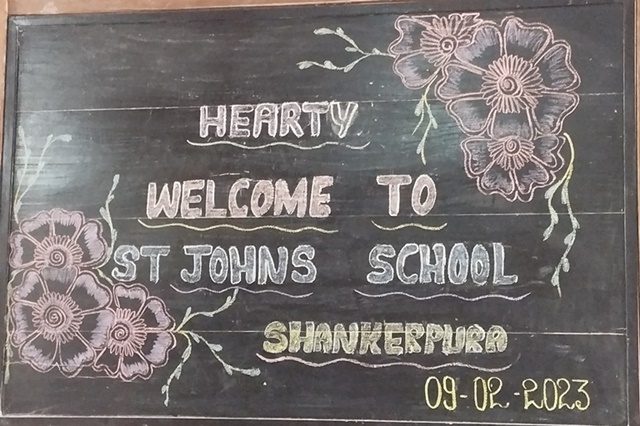 HEARTY
WELCOME TO
ST JOHNS SCHOOL
SHANKERPURA
09-02-2023